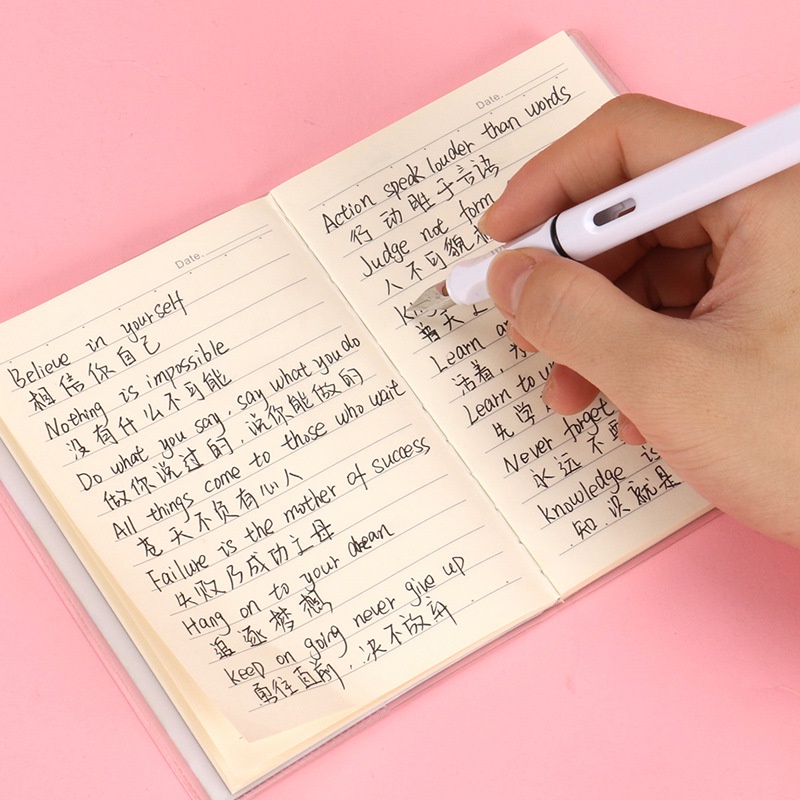 Date.
Believe in yourself
相信你自己
Nothing is impossible
没有什么不可能
Do what you say, say what you do
做你说过的，说你能做的
All things come to those who wait
苍天不负有心人
Failure is the mother of success
失败乃成功之母
Hang on to your dream
追逐梦想
keep on going never give up
勇往直前，决不放弃
Date.
Action speak louder than words
行动胜于言语
Judge not form
人不可貌
普天
Learn
活着，
Learn to
先学
Never forget
永远不
knowledge is
知识就是